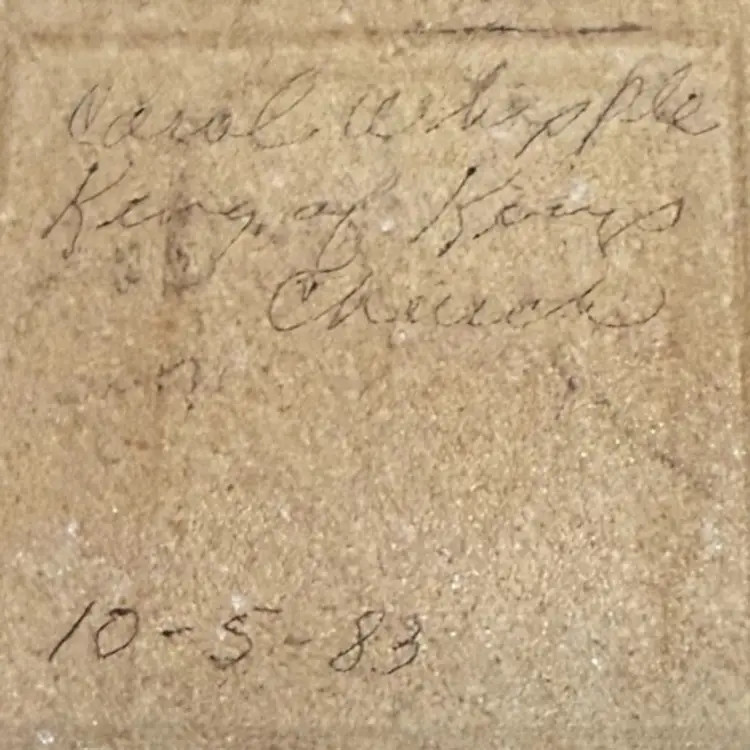 Carol Whipple
King of Kings
Church
10-5-83